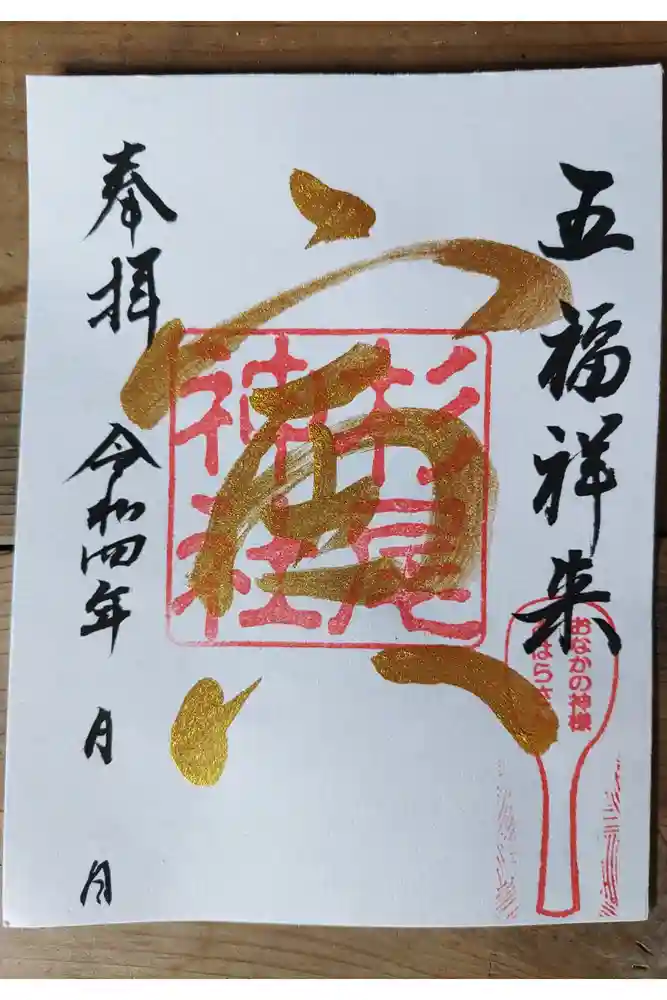 五福祥来
おなかの神様
はらさ
寅
杉尾
神社
奉拝
令和四年 月 日